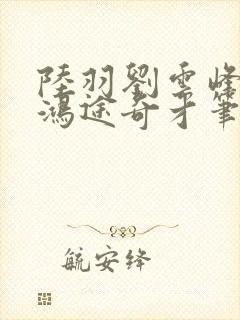 陸羽劉雲峰
鴻途奇才筆
航安絳